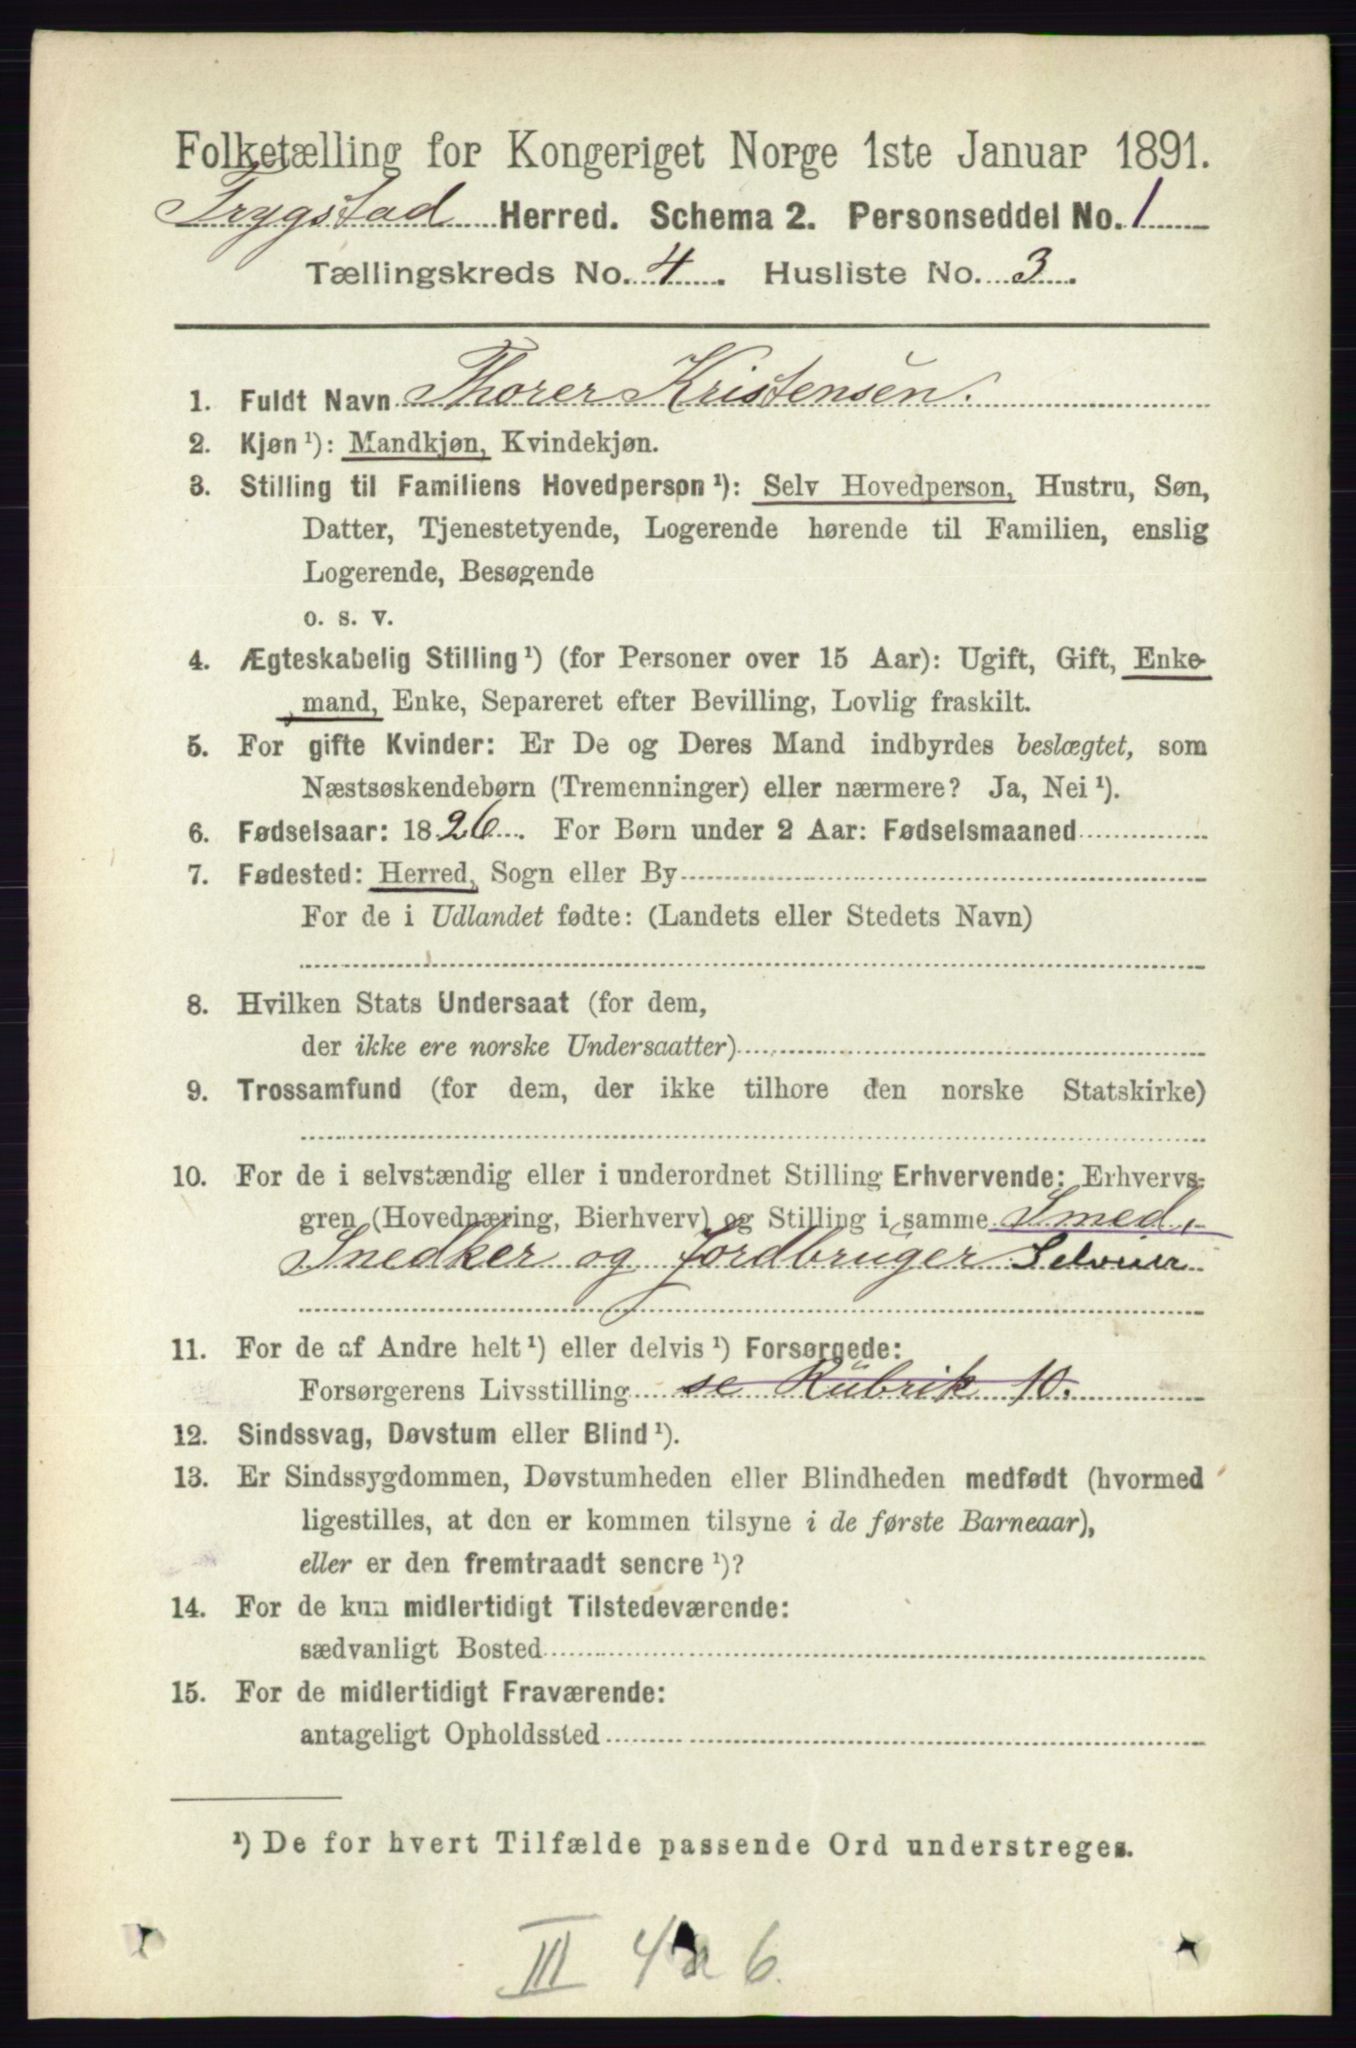 Folketælling for Kongeriget Norge 1ste Januar 1891.
Trygstad Herred. Schema 2. Personseddel No. 1
Tællingskreds No. 4. Husliste No. 3.
1. Fuldt Navn Thorer Kristensen.
2. Kjøn ¹): Mandkjøn, Kvindekjøn.
3. Stilling til Familiens Hovedperson ¹): Selv Hovedperson, Hustru, Søn,
Datter, Tjenestetyende, Logerende hørende til Familien, enslig
Logerende, Besøgende
o. s. v.
4. Ægteskabelig Stilling ¹) (for Personer over 15 Aar): Ugift, Gift, Enke-
mand, Enke, Separeret efter Bevilling, Lovlig fraskilt.
5. For gifte Kvinder: Er De og Deres Mand indbyrdes beslægtet, som
Næstsøskendebørn (Tremenninger) eller nærmere? Ja, Nei ¹).
6. Fødselsaar: 1826. For Børn under 2 Aar: Fødselsmaaned
7. Fødested: Herred, Sogn eller By
For de i Udlandet fødte: (Landets eller Stedets Navn)
8. Hvilken Stats Undersaat (for dem,
der ikke ere norske Undersaatter)
9. Trossamfund (for dem, der ikke tilhore den norske Statskirke)
10. For de i selvstændig eller i underordnet Stilling Erhvervende: Erhvervs-
gren (Hovednæring, Bierhverv) og Stilling i samme Smed,
Snedker og Jordbruger Selveier
11. For de af Andre helt ¹) eller delvis ¹) Forsørgede:
Forsørgerens Livsstilling se Rubrik 10.
12. Sindssvag, Døvstum eller Blind ¹).
13. Er Sindssygdommen, Døvstumheden eller Blindheden medfødt (hvormed
ligestilles, at den er kommen tilsyne i de første Barneaar),
eller er den fremtraadt senere ¹)?
14. For de kun midlertidigt Tilstedeværende:
sædvanligt Bosted
15. For de midlertidigt Fraværende:
antageligt Opholdssted
¹) De for hvert Tilfælde passende Ord understreges.
III 4a 6.